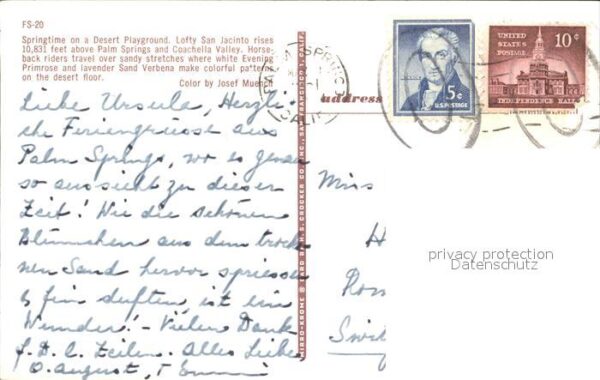 FS-20
Springtime on a Desert Playground. Lofty San Jacinto rises
10,831 feet above Palm Springs and Coachella Valley. Horse-
back riders travel over sandy stretches where white Evening
Primrose and lavender Sand Verbena make colorful patterns
on the desert floor.
Color by Josef Muench
PALM SPRINGS
CALIF.
address
5¢
U.S. POSTAGE
UNITED
STATES
POSTAGE
10¢
INDEPENDENCE HALL
MIRRO-KROME ® CARD BY H. S. CROCKER CO. INC., SAN FRANCISCO 1, CALIF.
Liebe Ursula, Herzli-
che Feriengrüsse aus
Palm Springs, wo es genau
so aussieht zu dieser
Zeit! Wie die schönen
Blümchen aus dem trock-
nen Sand hervor spriessen
& fein duften, ist ein
Wunder! - Vielen Dank
f. D. l. Zeilen. Alles Liebe
O. august, T
Miss
H
Swi
privacy protection
Datenschutz